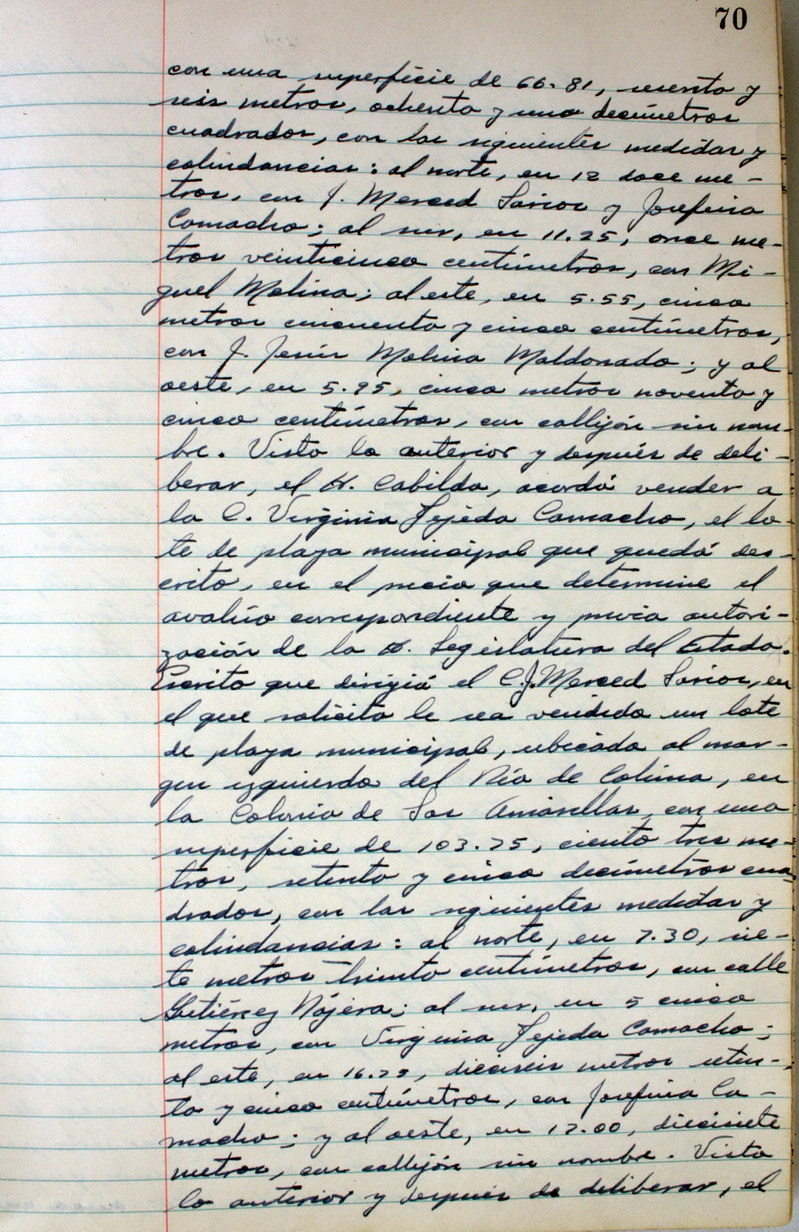 70
con una superficie de 66.81, sesenta y
seis metros, ochenta y uno decímetros
cuadrados, con las siguientes medidas y
colindancias: al norte, en 12 doce me-
tros, con J. Merced Larios y Josefina
Camacho; al sur, en 11.25, once me-
tros veinticinco centímetros, con Mi-
guel Molina; al este, en 5.55, cinco
metros cincuenta y cinco centímetros,
con J. Jesús Molina Maldonado; y al
oeste, en 5.95, cinco metros noventa y
cinco centímetros, con callejón sin nom-
bre. Visto lo anterior y después de deli-
berar, el H. Cabildo, acordó vender a
la C. Virginia Tejeda Camacho, el lo-
te de playa municipal que quedó des-
crito, en el precio que determine el
avalúo correspondiente y previa autori-
zación de la H. Legislatura del Estado.
Escrito que dirigió el C. J. Merced Larios, en
el que solicita le sea vendido un lote
de playa municipal, ubicado al mar-
gen izquierdo del Río de Colima, en
la Colonia de Las Amarillas, con una
superficie de 103.75, ciento tres me-
tros, setenta y cinco decímetros cua-
drados, con las siguientes medidas y
colindancias: al norte, en 7.30, sie-
te metros treinta centímetros, con calle
Gutiérrez Nájera; al sur, en 5 cinco
metros, con Virginia Tejeda Camacho;
al este, en 16.75, dieciseis metros seten-
ta y cinco centímetros, con Josefina Ca-
macho; y al oeste, en 17.00, diecisiete
metros, con callejón sin nombre. Visto
lo anterior y después de deliberar, el